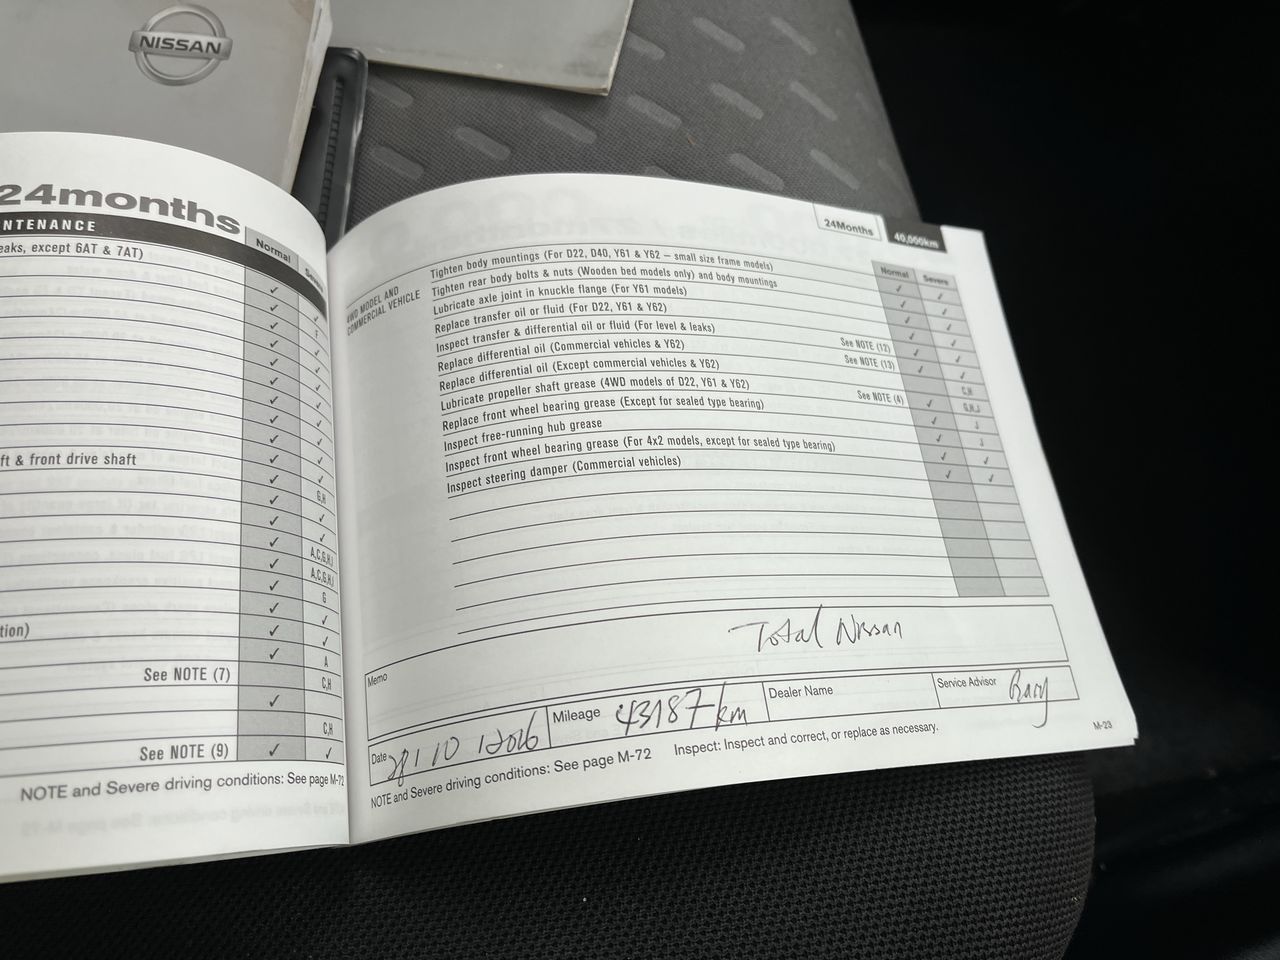 NISSAN
24months
NTENANCE
Normal
eaks, except 6AT & 7AT)
ft & front drive shaft
G,H
A,C,G,H,I
A,C,G,H,I
G
tion)
A
See NOTE (7)
C,H
C,H
See NOTE (9)
NOTE and Severe driving conditions: See page M-72
24Months
40,000km
Normal Severe
4WD MODEL AND
COMMERCIAL VEHICLE
Tighten body mountings (For D22, D40, Y61 & Y62 – small size frame models)
Tighten rear body bolts & nuts (Wooden bed models only) and body mountings
Lubricate axle joint in knuckle flange (For Y61 models)
Replace transfer oil or fluid (For D22, Y61 & Y62)
Inspect transfer & differential oil or fluid (For level & leaks)
Replace differential oil (Commercial vehicles & Y62) See NOTE (12) C,H
Replace differential oil (Except commercial vehicles & Y62) See NOTE (13) G,H,J
Lubricate propeller shaft grease (4WD models of D22, Y61 & Y62) J
Replace front wheel bearing grease (Except for sealed type bearing) See NOTE (4) J
Inspect free-running hub grease
Inspect front wheel bearing grease (For 4x2 models, except for sealed type bearing)
Inspect steering damper (Commercial vehicles)
Memo
Total Nissan
Date
10
Mileage 43187km
Dealer Name
Service Advisor
NOTE and Severe driving conditions: See page M-72 Inspect: Inspect and correct, or replace as necessary.
M-23